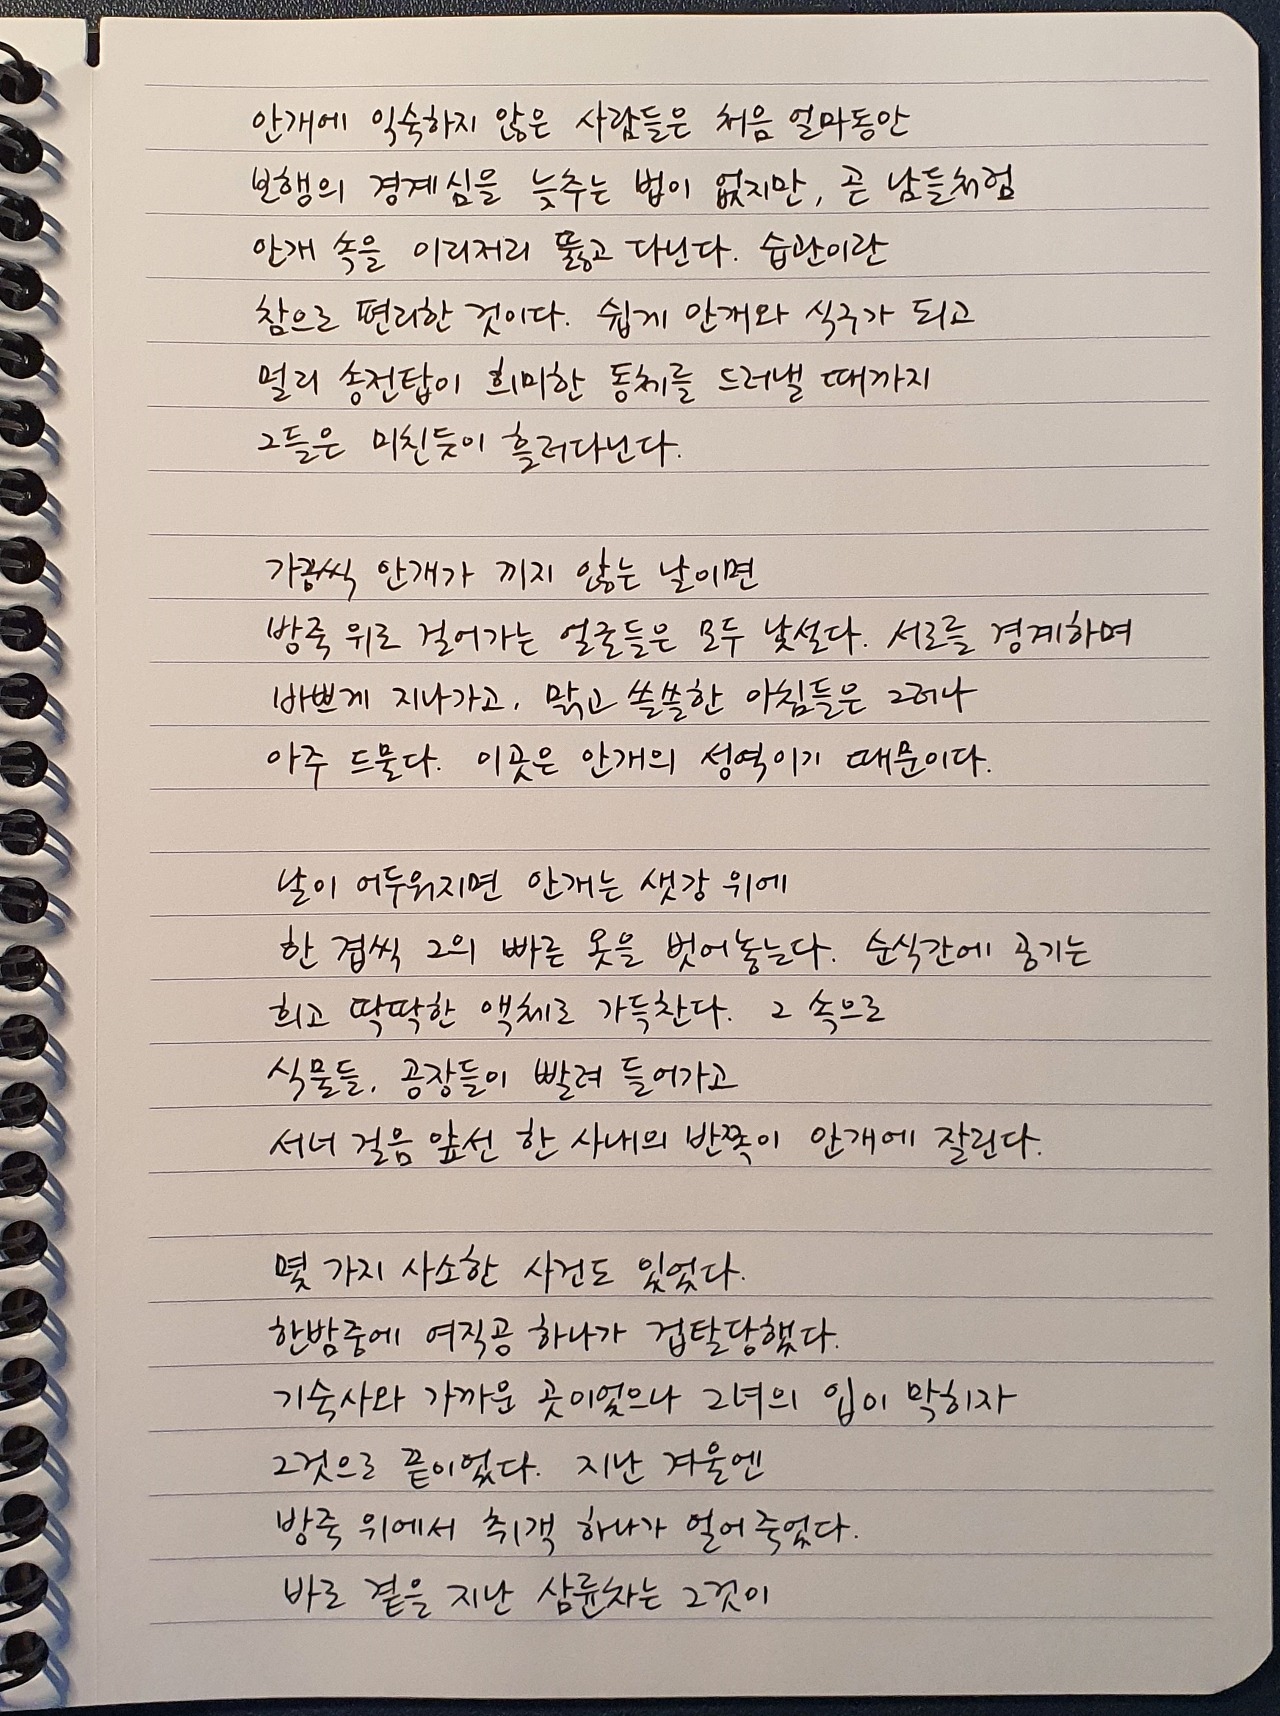 안개에 익숙하지 않은 사람들은 처음 얼마동안
보행의 경계심을 늦추는 법이 없지만, 곧 남들처럼
안개 속을 이리저리 뚫고 다닌다. 습관이란
참으로 편리한 것이다. 쉽게 안개와 식구가 되고
멀리 송전탑이 희미한 동체를 드러낼 때까지
그들은 미친듯이 흘러다닌다.
가끔씩 안개가 끼지 않는 날이면
방죽 위로 걸어가는 얼굴들은 모두 낯설다. 서로를 경계하며
바쁘게 지나가고, 맑고 쓸쓸한 아침들은 그러나
아주 드물다. 이곳은 안개의 성역이기 때문이다.
날이 어두워지면 안개는 샛강 위에
한 겹씩 그의 빠른 옷을 벗어놓는다. 순식간에 공기는
희고 딱딱한 액체로 가득찬다. 그 속으로
식물들, 공장들이 빨려 들어가고
서너 걸음 앞선 한 사내의 반쪽이 안개에 잘린다.
몇 가지 사소한 사건도 있었다.
한밤중에 여직공 하나가 겁탈당했다.
기숙사와 가까운 곳이었으나 그녀의 입이 막히자
그것으로 끝이었다. 지난 겨울엔
방죽 위에서 취객 하나가 얼어 죽었다.
바로 곁을 지난 삼륜차는 그것이